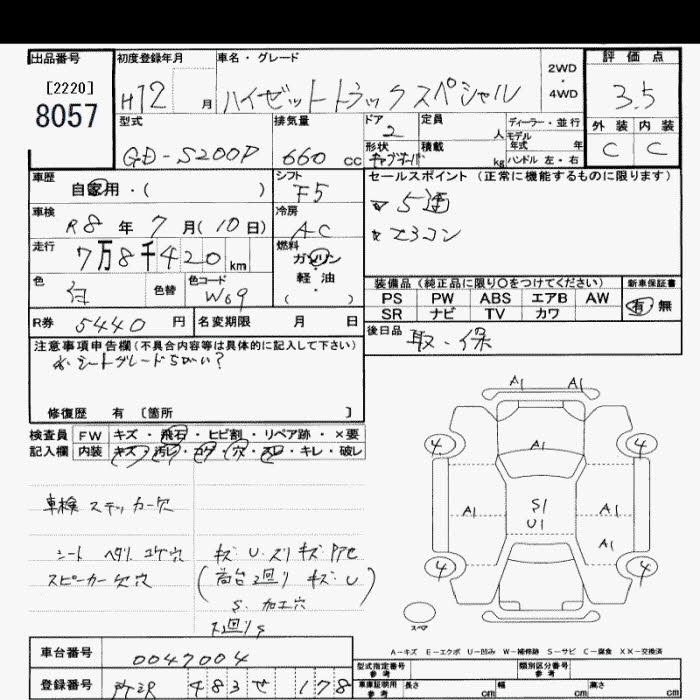 出品番号
[2220]
8057
初度登録年月
H12 月
車名・グレード
ハイゼットトラックスペシャル
2WD
・
4WD
評価点
3.5
外装 内装
C C
型式
GD-S200P
排気量
660 cc
ドア
2
定員
人
形状
積載
kg
ディーラー・並行
モデル
年式 年
ハンドル 左・右
車歴
自家用・( )
シフト
F5
車検
R8 年 7 月(10日)
冷房
AC
走行
7万8千420 km
燃料
ガソリン
・
軽油
( )
色
白
色替
色コード
W09
R券 5440 円
名変期限 月 日
セールスポイント (正常に機能するものに限ります)
5速
エアコン
装備品(純正品に限り○をつけてください)
PS PW ABS エアB AW
SR ナビ TV カワ
新車保証書
有 無
後日品
取・保
注意事項申告欄(不具合内容等は具体的に記入して下さい)
※シートグレードちがい?
修復歴 有 〔箇所 〕
検査員
記入欄
FW キズ・飛石・ヒビ割・リペア跡・×要
内装 キズ・汚レ・コゲ・穴・スレ・キレ・破レ
車検ステッカー欠
シート ヘタリ コゲ穴
スピーカー欠穴
キズ・U・スリキズ
荷台 キズ U
S・加工穴
下廻りS
A1 A1
4 4
A1
A1 S1 A1
U1
A1
4 4
スペア
A-キズ E-エクボ U-凹み W-補修跡 S-サビ C-腐食 XX-交換済
車台番号
0047004
登録番号
所沢 483 せ 178
型式指定番号
参考
類別区分番号
参考
車庫証明用
参考
長さ cm
幅 cm
高さ cm